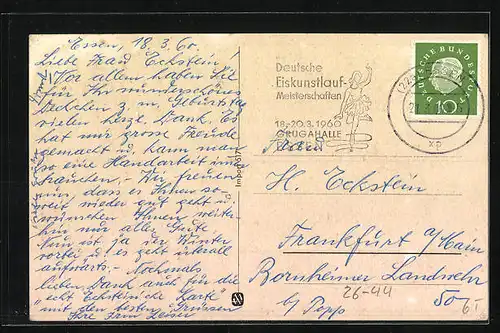 Essen, 18.3.60.
Liebe Frau Eckstein!
Vor allem haben Sie
für Ihr wunderschönes
Deckchen z. m. Geburtstag
vielen herzl. Dank. Es
hat mir grosse Freude
gemacht u. kann man
so eine Handarbeit immer
brauchen. - Wir freuen
uns, dass es Ihnen so-
weit wieder gut geht u.
wünschen Ihnen weiter-
hin nur alles Gute
Nun ist ja der Winter
vorbei u. es geht überall
aufwärts. - Nochmals
lieben Dank auch für die
"echt Ecksteinsche Karte"
mit den besten Grüssen
Ihre Frau
Deutsche
Eiskunstlauf-
Meisterschaften
18.-20.3.1960
GRUGAHALLE
ESSEN
DEUTSCHE BUNDESPOST
10
xp
H. Eckstein
Frankfurt a/Main
Bornheimer Landwehr
50
b/ Popp
26-44